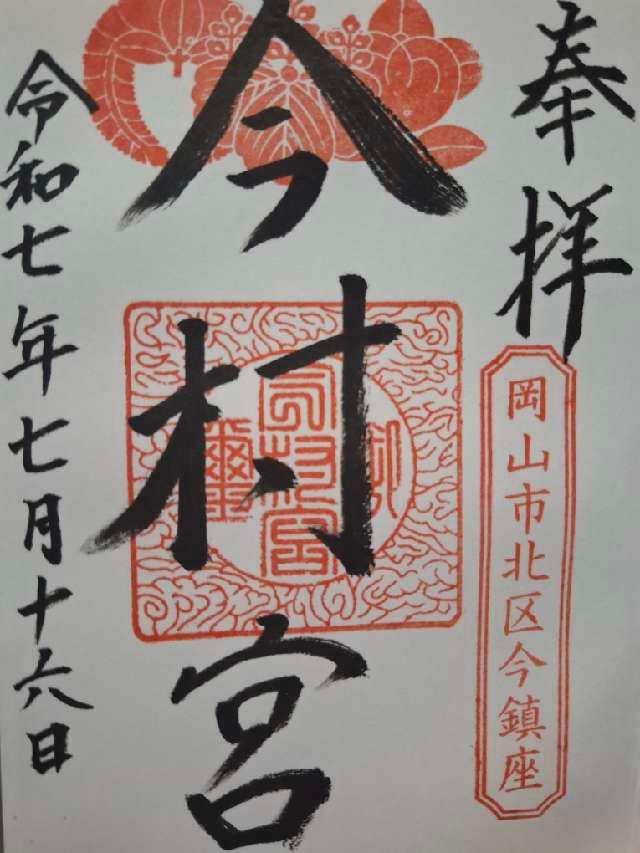 奉拝
岡山市北区今鎮座
今村宮
令和七年七月十六日